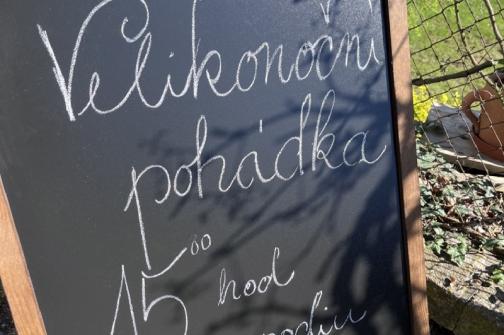 Velikonoční
pohádka
15⁰⁰ hod